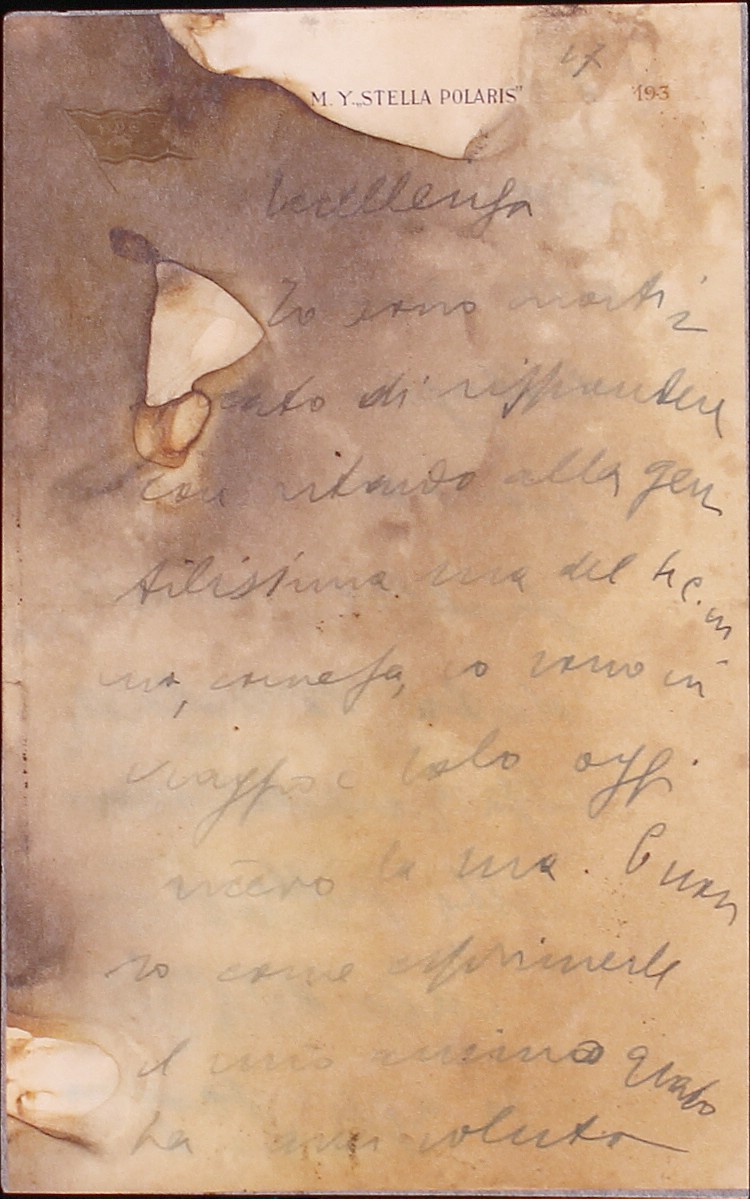 17
M. Y. „STELLA POLARIS" 193
Eccellenza
Io sono morti
cato di rispondere
con ritardo alla gen
tilissima sua del
ma, come sa, io sono in
viaggio e solo oggi
ricevo la sua. E non
so come esprimerle
il mio animo grato
ha voluto